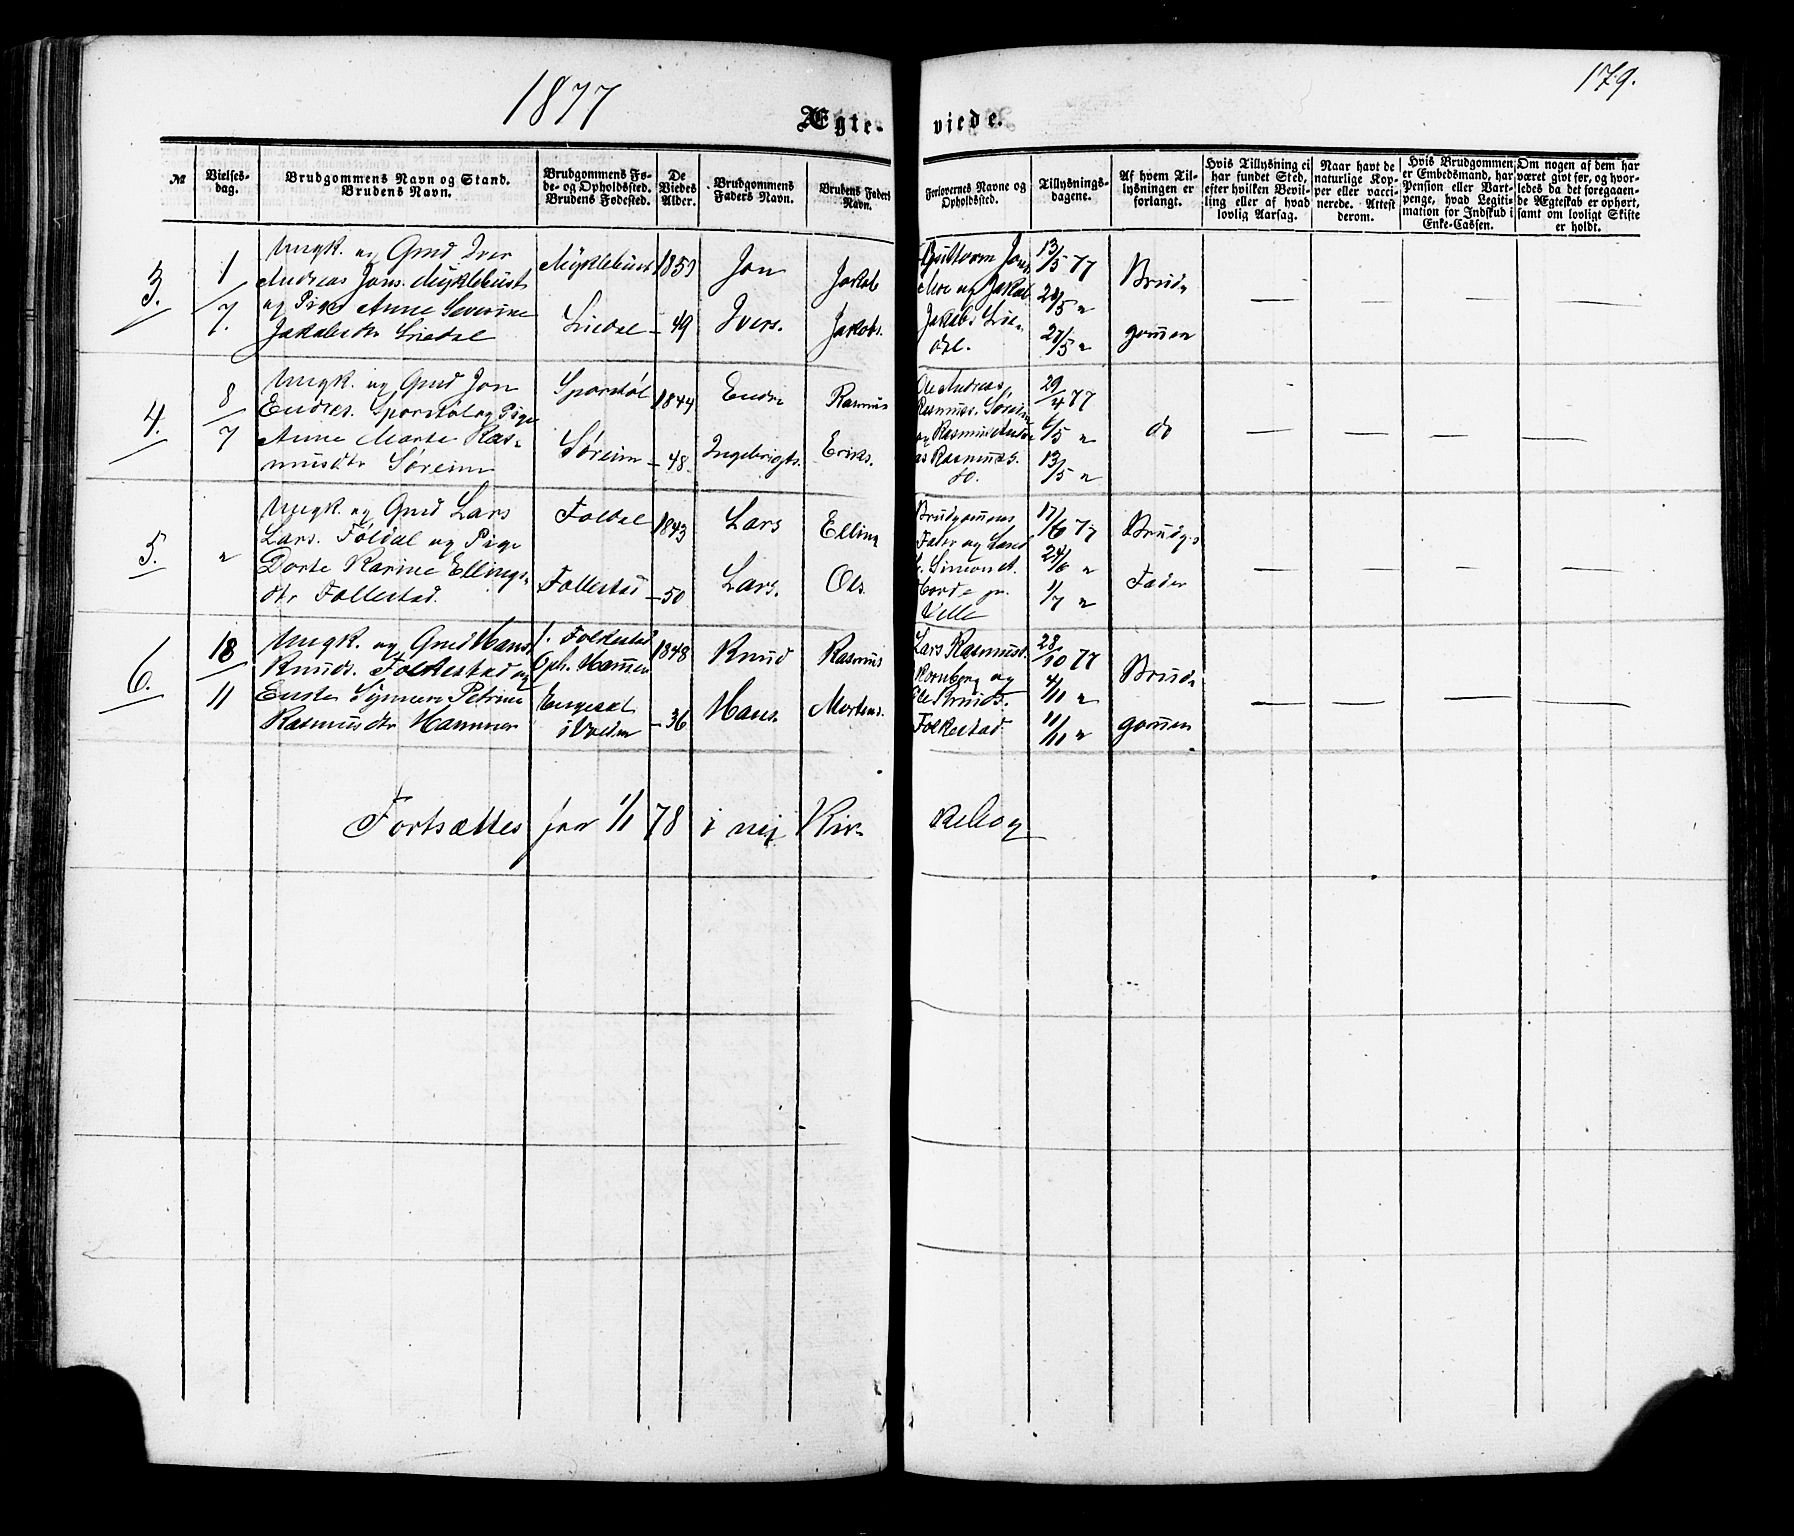 1877
179.
Ægte-
viede.
№
Vielses-
dag.
Brudgommens Navn og Stand.
Brudens Navn.
Brudgommens Fø-
de- og Opholdssted.
Brudens Fødested.
De
Viedes
Alder.
Brudgommens
Faders Navn.
Brudens Faders
Navn.
Forlovernes Navne og
Opholdssted.
Tillysnings-
dagene.
Af hvem Til-
lysningen er
forlangt.
Hvis Tillysning ei
har fundet Sted,
efter hvilken Bevil-
ling eller af hvad
lovlig Aarsag.
Naar havt de
naturlige Kop-
per eller vacci-
nerede. Attest
derom.
Hvis Brudgommen
er Embedsmand, har
Pension eller Vart-
penge, hvad Legiti-
mation for Indskud i
Enke-Cassen.
Om nogen af dem har
været givt før, og hvor-
ledes da det foregaaen-
de Ægteskab er ophørt,
samt om lovligt Skifte
er holdt.
3.
1/7.
Ungk. og Gmd Iver
Andreas Jons. Myklebust
og Pige Anne Severine
Jakobsdtr Liedal
Myklebust
Liedal
1853
- 49
Jon
Ivers.
Jakob
Jakobs.
Guttorm Jons.
Moe og Jakob
Jakobs. Lie-
dal.
13/5 77
20/5 "
27/5 "
Brud-
gommen
4.
8/7
Ungk. og Gmd Jon
Endres. Sporstøl og Pige
Anne Marte Ras-
musdtr Søreim
Sporstøl
Søreim
1844
- 48.
Endre
Ingebrigts.
Rasmus
Eriks.
Ole Andreas
Rasmus. Søreim
og Rasmus Andre-
as Rasmus.
do.
29/4 77
6/5 "
13/5 "
do
5.
"
Ungk. og Gmd Lars
Lars. Foldal og Pige
Dorte Karine Ellings-
dtr Follestad.
Foldal
Follestad
1843
- 50
Lars
Lars.
Elling
Ols.
Brudgommens
Fader og Land.
Velle
17/6 77
24/6 "
1/7 "
Brudg.s
Fader
6.
18/11
Ungk. og Gmd Hans
Knuds. Folkestad og
Enke Synneve Petrine
Rasmusdtr Hammer
f. Folkestad
Oph. Hammer
i Volden
1848
- 36
Knud
Hans.
Rasmus
Mortens.
Lars Rasmus.
Kornberg og
Ole Knuds.
Folkestad
28/10 77
4/11 "
11/11 "
Brud-
gommen
Fortsættes fra 1/1 78 i ny Kir-
kebog